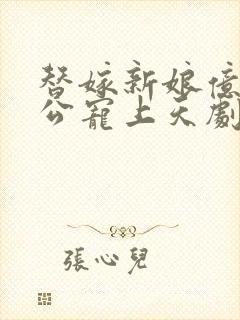 替嫁新娘億
公寵上天劇
張心兒